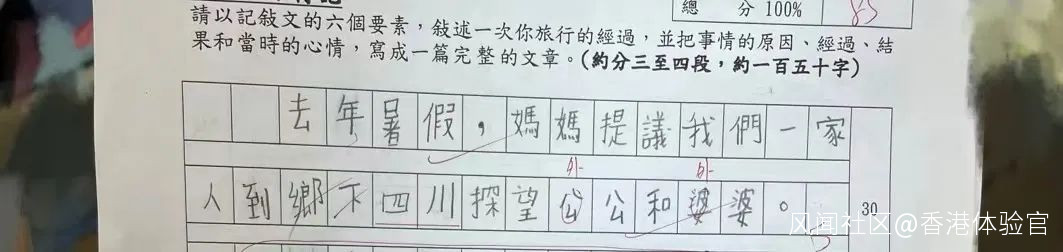 總 分 100%
85
請以記敍文的六個要素，敍述一次你旅行的經過，並把事情的原因、經過、結
果和當時的心情，寫成一篇完整的文章。(約分三至四段，約一百五十字)
去年暑假，媽媽提議我們一家
外 外
人到鄉下四川探望公公和婆婆。 30
风闻社区@香港体验官